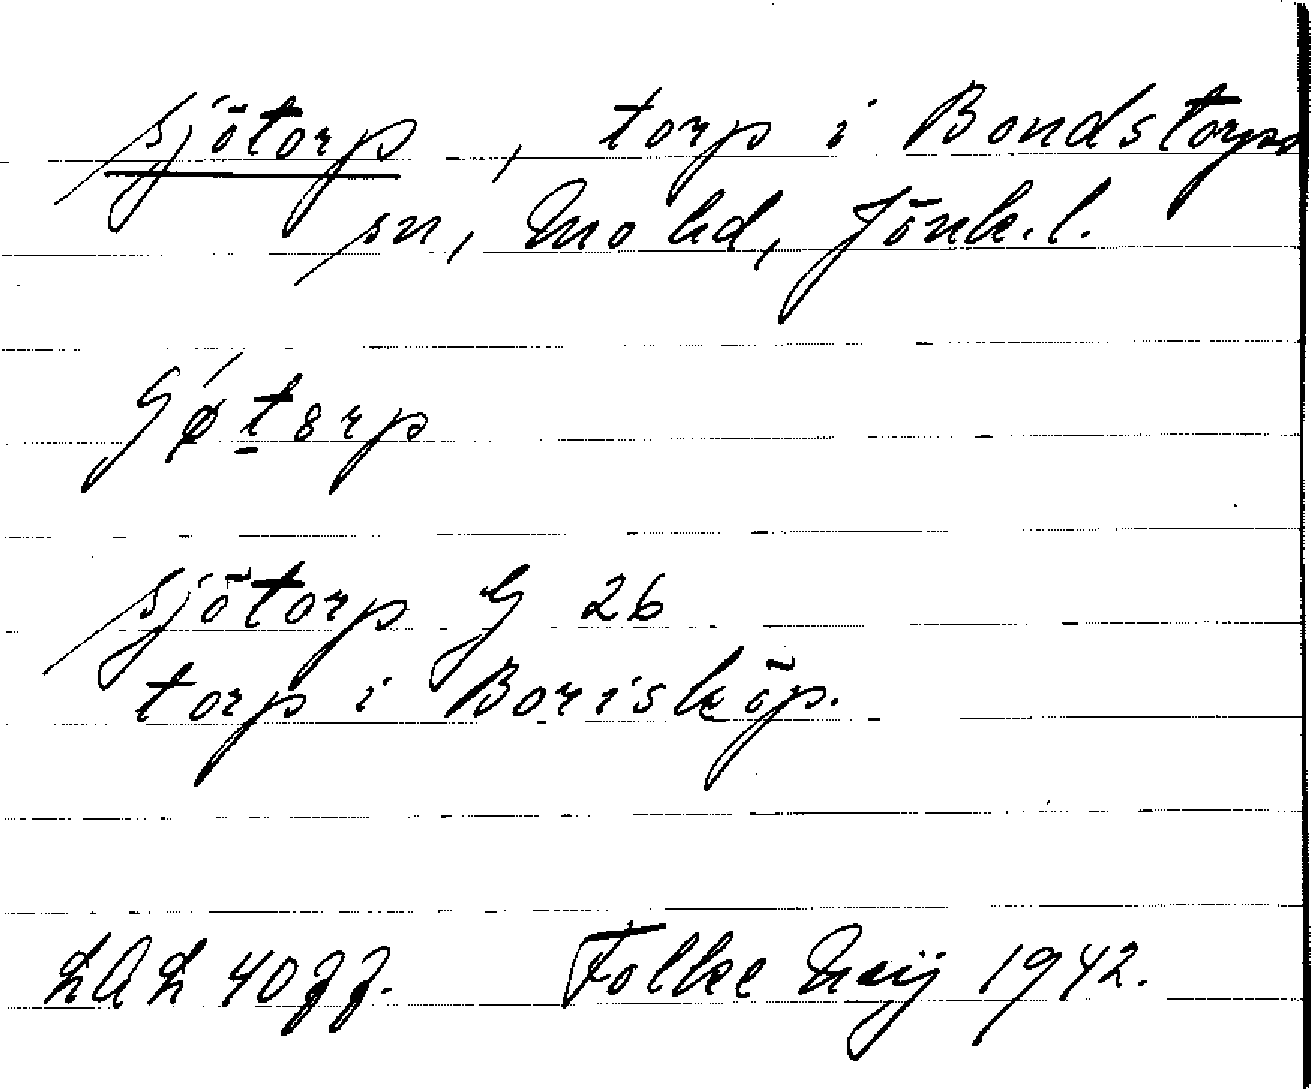 Sjötorp, torp i Bondstorps
sn, Mo hd, Jönk. l.
Sjötorp G 26
torp i Borisköp.
LAL 4077. Folke Meij 1942.